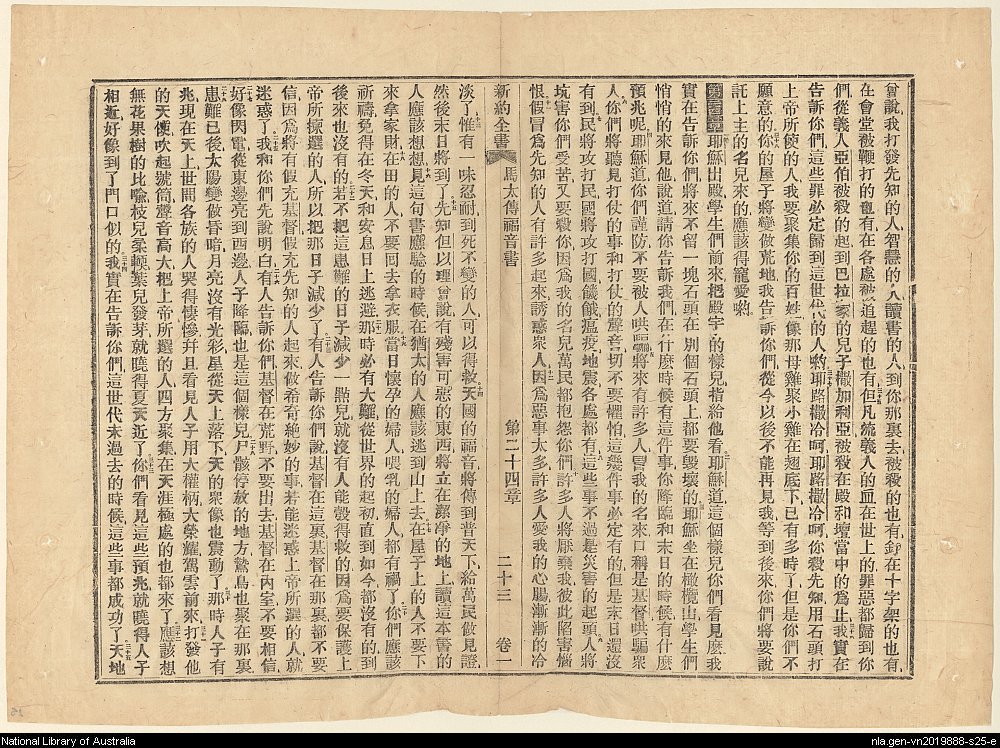 曾說我打發先知的人智慧的人讀書的人到你那裏去被殺的也有釘在十字架的也有
在會堂被鞭打的也有在各處被追趕的也有但凡流義人的血在世上的罪惡都歸到你
們從義人亞伯被殺的起到巴拉家的兒子撒加利亞被殺在殿和壇當中的為止我實在
告訴你們這些罪必定歸到這世代的人的耶路撒冷呵耶路撒冷呵你殺先知用石頭打
上帝所使的人我要聚集你的百姓像那母雞聚小雞在翅底下已有多時了但是你們不
願意的你的屋子將變做荒地我告訴你們從今以後不能再見我等到後來你們將要說
託上主的名兒來的應該得寵愛喲
耶穌出殿學生們前來把殿宇的樣兒指給他看耶穌道這個樣兒你們看見麽我
實在告訴你們將來不留一塊石頭在別個石頭上都要毀壞的耶穌坐在橄欖山學生們
悄悄的來見他說道請你告訴我們在什麽時候有這件事你降臨和末日的時候有什麽
預兆呢耶穌道你們謹防不要被人哄騙將來有許多人冒我的名來口稱是基督哄騙衆
人你們將聽見打仗的事和打仗的聲音切不要懼怕這幾件事必定有的但是末日還沒
有到民將攻打民國將攻打國饑餓瘟疫地震各處都有這些事不過是災害的起頭人將
坑害你們受苦又要殺你因爲我的名兒萬民都抱怨你們許多人將厭棄我彼此陷害惱
恨假冒爲先知的人有許多起來誘惑衆人因爲惡事太多許多人愛我的心腸漸漸的冷
新約全書 馬太傳福音書 第二十四章 二十三 卷一
淡了惟有一味忍耐到死不變的人可以得救天國的福音將傳到普天下給萬民做見證
然後末日將到了先知但以理曾說有殘害可惡的東西將立在潔淨的地上讀這本書的
人應該想想見這句書應驗的時候在猶太的人應該逃到山上去在屋子上的人不要下
來拿家財在田的人不要回去拿衣服當日懷孕的婦人喂乳的婦人都有禍了你們應該
祈禱免得在冬天和安息日上逃避那時必有大難從世界的起初直到如今都沒有的到
後來也沒有的若不把這患難的日子減少一點兒就沒有人能彀得救的因爲要保護上
帝所揀選的人所以把那日子減少了有人告訴你們說基督在這裏基督在那裏都不要
信因爲將有假充基督假充先知的人起來做希奇絶妙的事若能迷惑上帝所選的人就
迷惑了我和你們先說明白有人告訴你們基督在荒野不要出去基督在內室不要相信
好像閃電從東邊亮到西邊人子降臨也是這個樣兒屍骸停放的地方鷲鳥也聚在那裏
患難已後太陽變做昏暗月亮沒有光彩星從天上落下天的衆像也震動了那時人子有
兆現在天上世間各族的人哭得悽慘并且看見人子用大權柄大榮耀駕雲前來打發他
的天使吹起號筒聲音高大把上帝所選的人四方聚集在天涯極處的也都來了應該想
無花果樹的比喩枝兒柔輭葉兒發芽就曉得夏天近了你們看見這些預兆就曉得人子
相近好像到了門口似的我實在告訴你們這世代未過去的時候這些事都成功了天地
National Library of Australia
nla.gen-vn2019888-s25-e